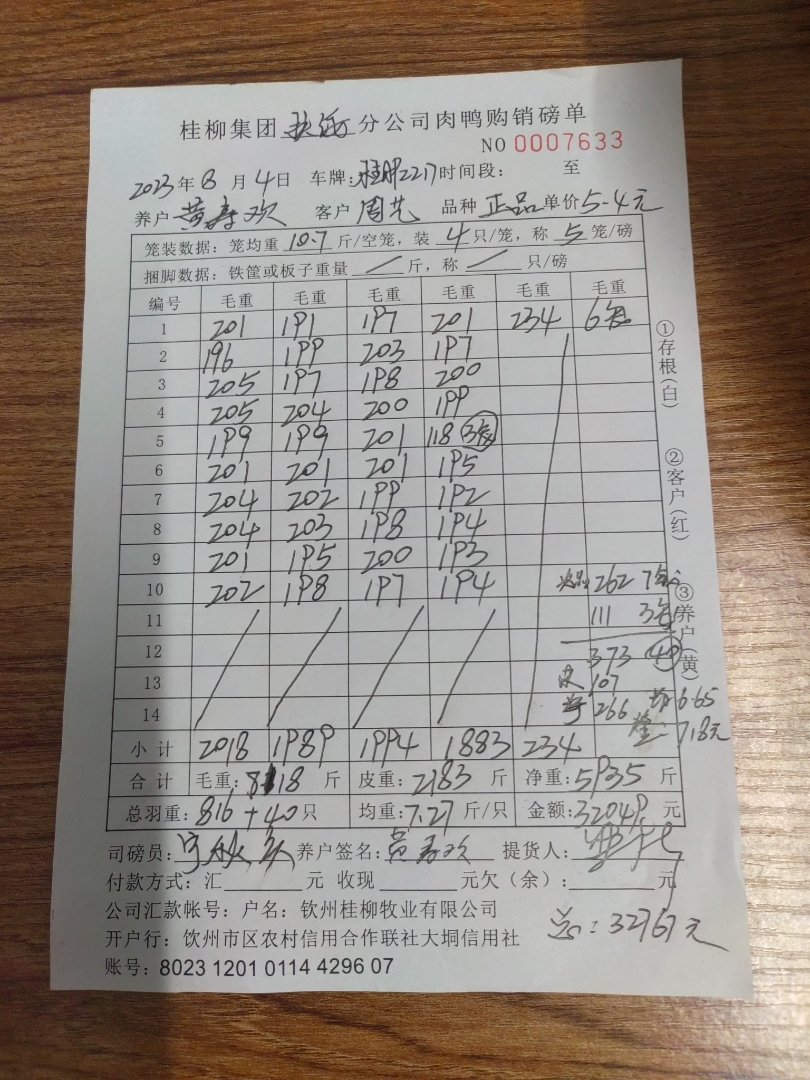 桂柳集团 分公司肉鸭购销磅单
NO 0007633
2023年8月4日 车牌: 2217 时间段: 至
养户 黄寿欢 客户 周艺 品种 正品 单价 5.4元
笼装数据: 笼均重 10.7 斤/空笼, 装 4 只/笼, 称 5 笼/磅
捆脚数据: 铁筐或板子重量 / 斤, 称 / 只/磅
编号 毛重 毛重 毛重 毛重 毛重 毛重
1 201 191 197 201 234 6笼
2 196 199 203 197
3 205 197 198 200
4 205 204 200 199
5 199 199 201 118 3笼
6 201 201 201 195
7 204 202 199 192
8 204 203 198 194
9 201 195 200 193
10 202 198 197 194 次品 262 7笼
11 111 3笼
12 373 40
13 皮 107
14 净 266 均 6.65
718元
小计 2018 1989 1994 1883 234
合计 毛重: 8118 斤 皮重: 2183 斤 净重: 5935 斤
总羽重: 816+40 只 均重: 7.27 斤/只 金额: 32049. 元
①存根(白)
②客户(红)
③养户(黄)
司磅员: 养户签名: 黄寿欢 提货人:
付款方式: 汇 元 收现 元欠(余): 元
公司汇款帐号: 户名: 钦州桂柳牧业有限公司
总: 32767元
开户行: 钦州市区农村信用合作联社大垌信用社
账号: 8023 1201 0114 4296 07